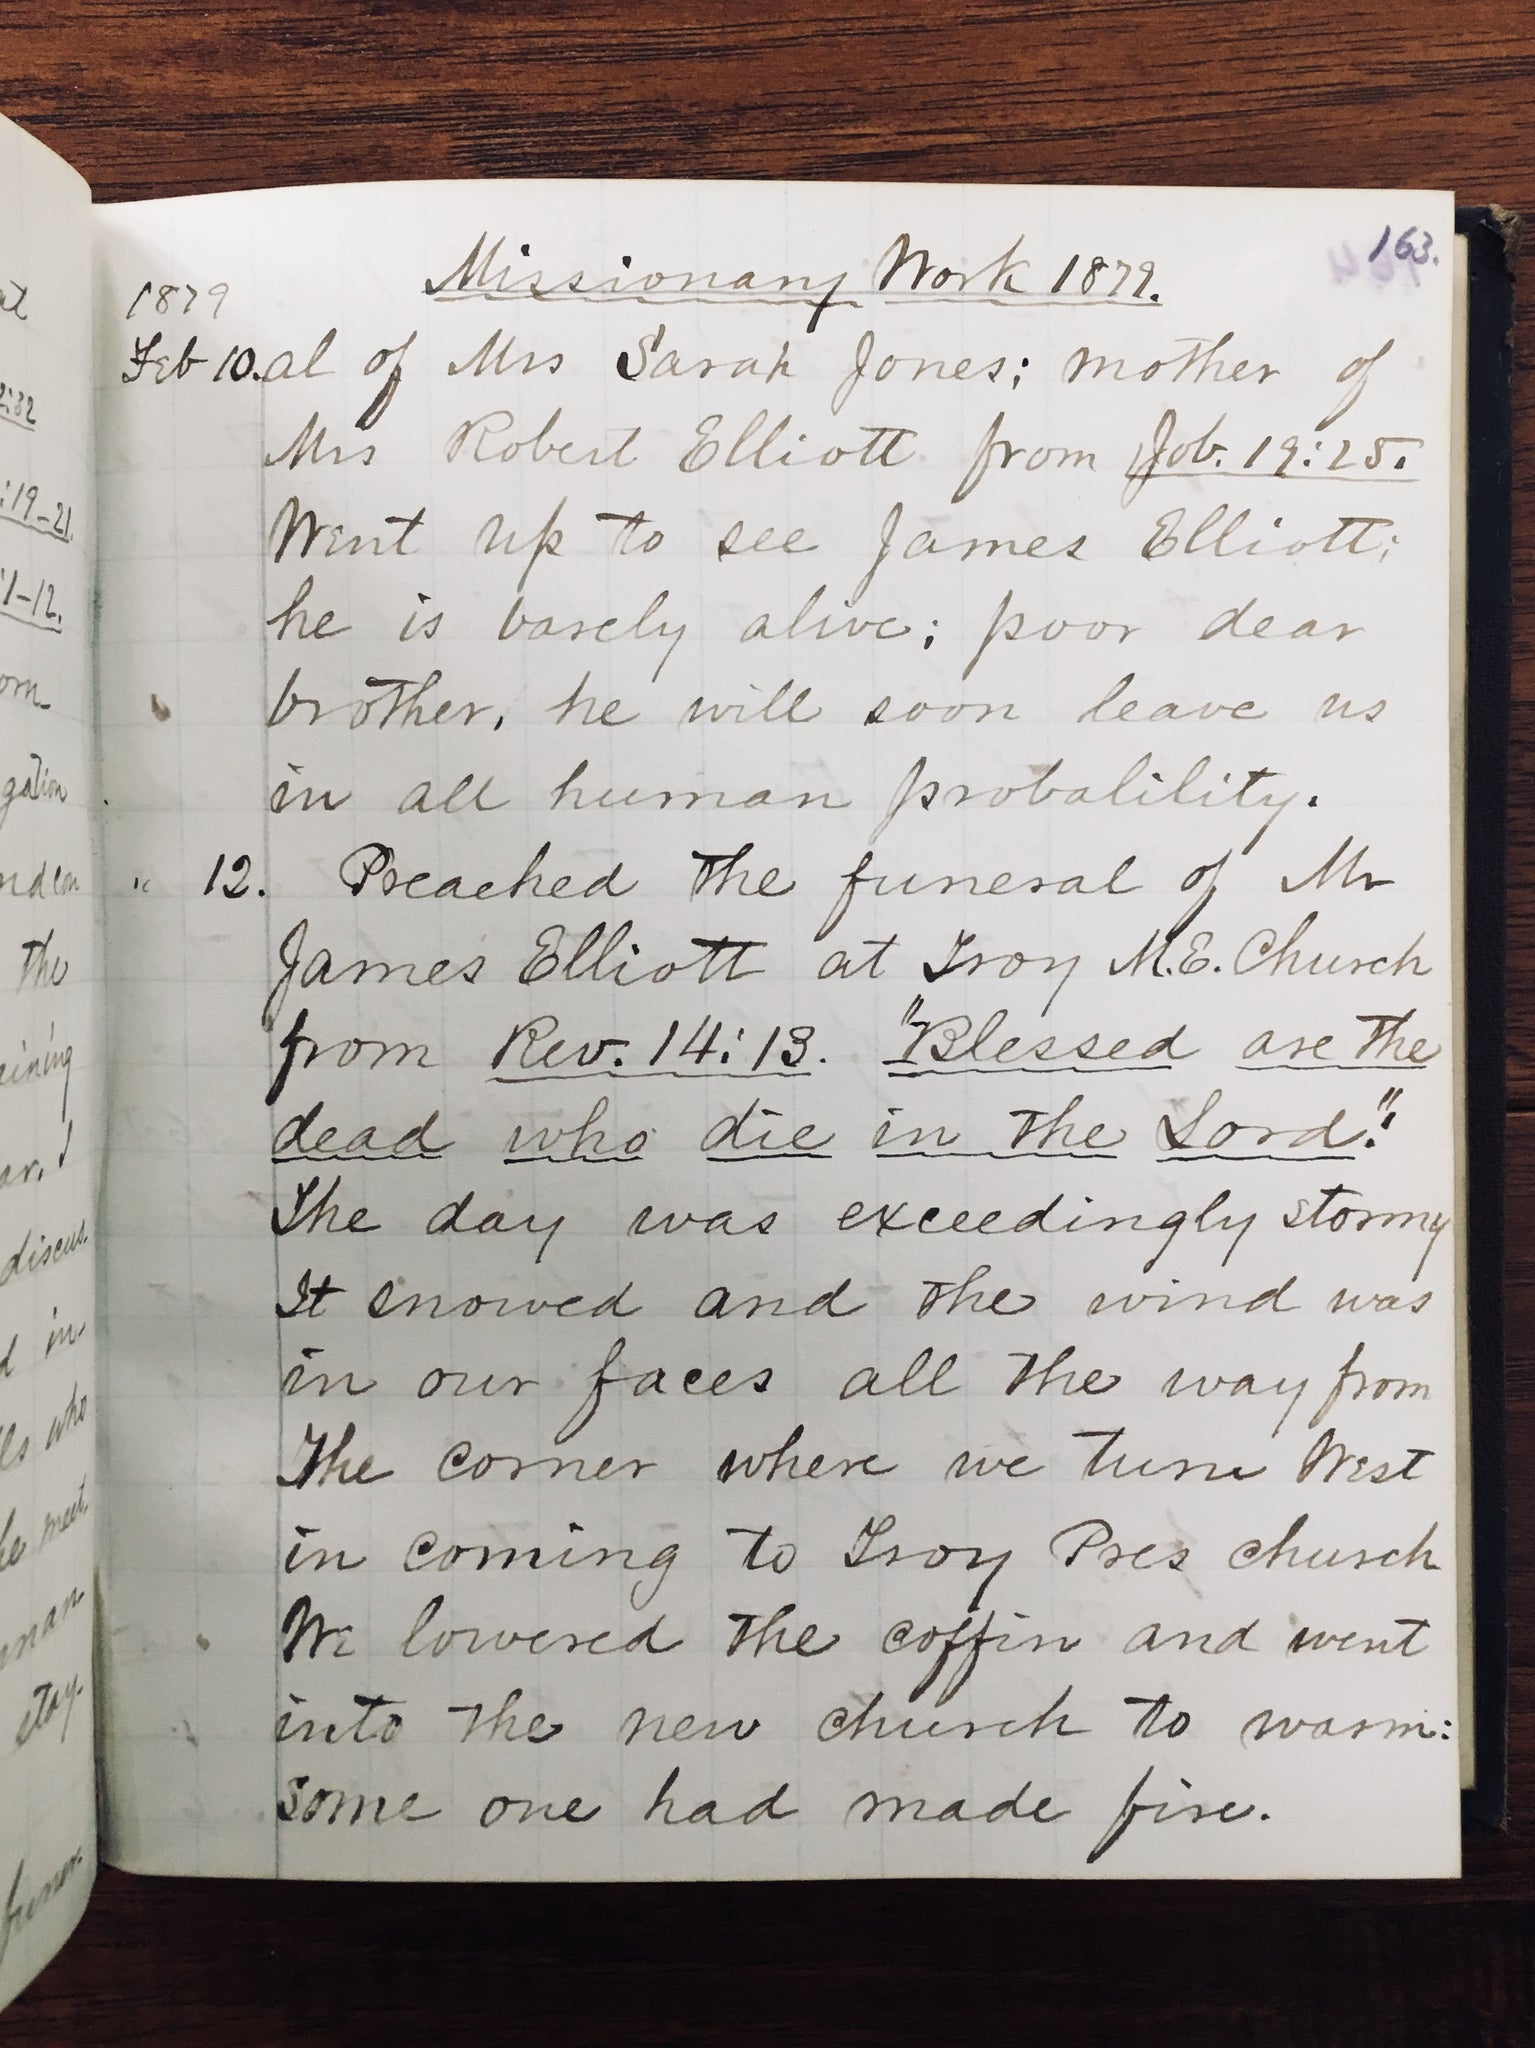 at
2:32
:19-21.
:1-12.
orn
gation
the
ining
discus-
d in-
ls who
he meet-
man-
stay-
funer-
163.
Missionary Work 1879.
1879
Feb 10. al of Mrs Sarah Jones; mother of
Mrs Robert Elliott from Job. 19:25.
Went up to see James Elliott;
he is barely alive; poor dear
brother, he will soon leave us
in all human probalility.
" 12. Preached the funeral of Mr
James Elliott at Troy M.E. Church
from Rev. 14:13. "Blessed are the
dead who die in the Lord."
The day was exceedingly stormy
It snowed and the wind was
in our faces all the way from
The corner where we turn West
in coming to Troy Pres church
We lowered the coffin and went
into the new church to warm:
Some one had made fire.